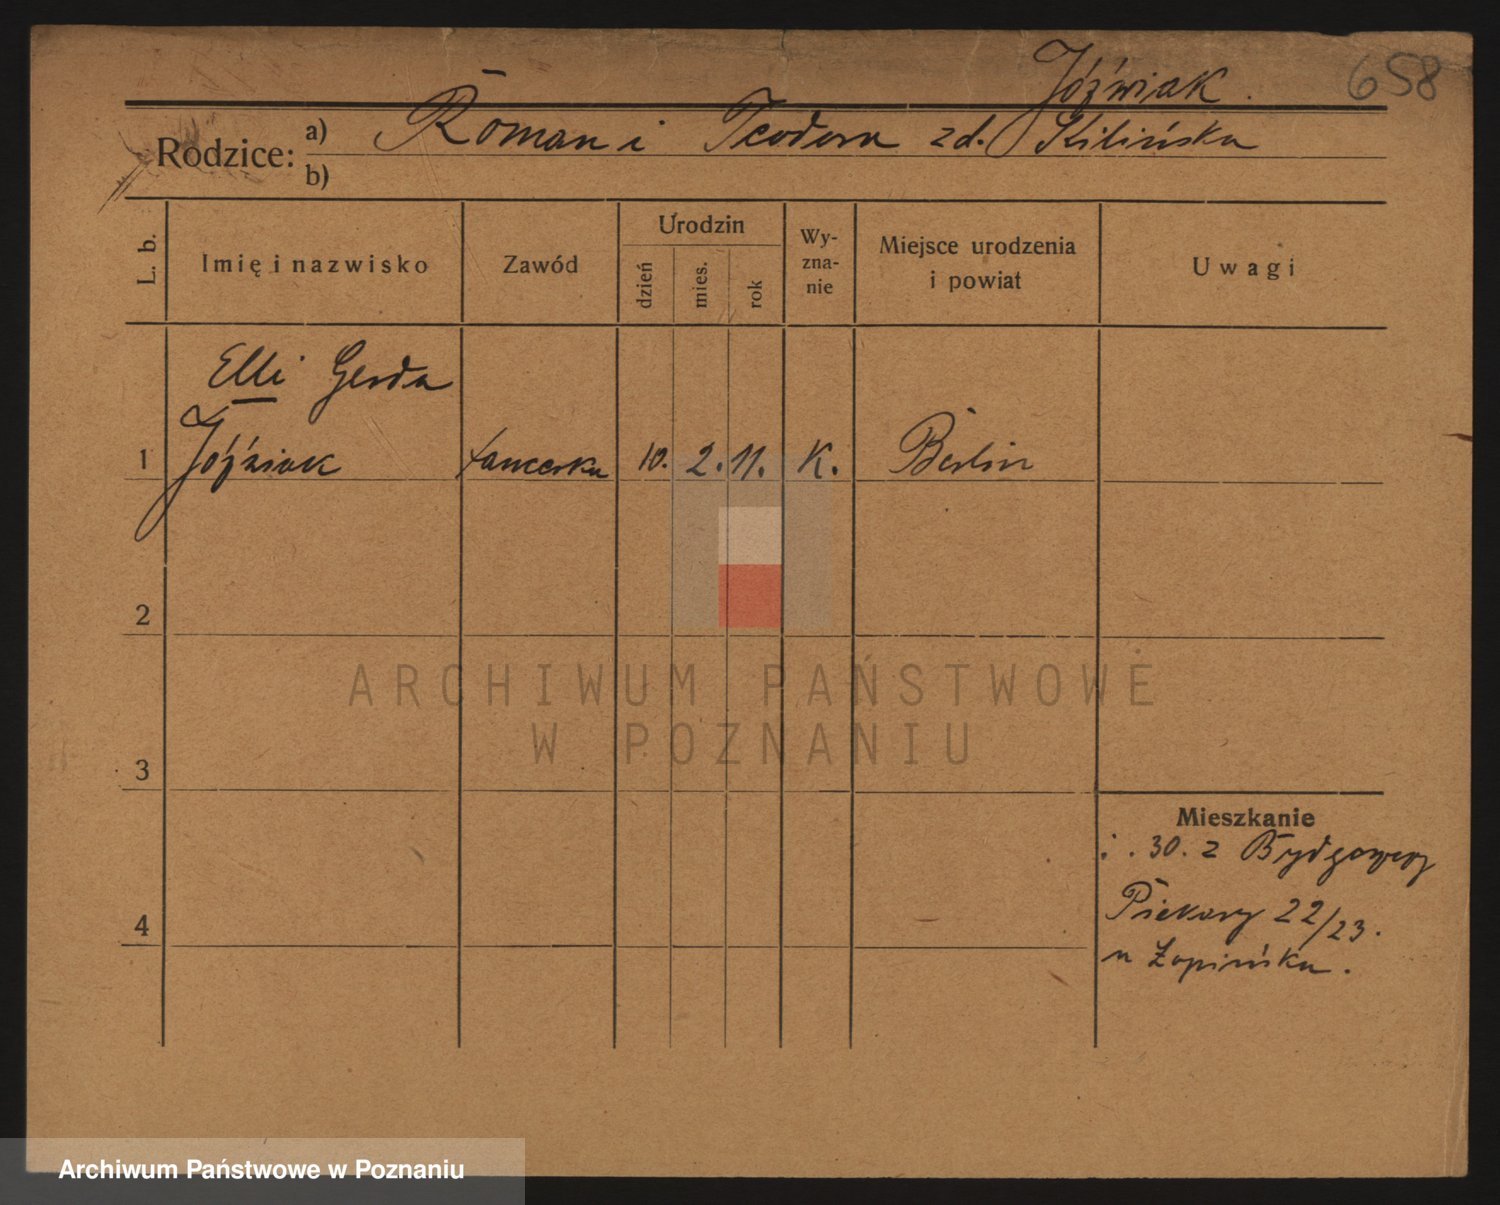 Jóźwiak. 658
Rodzice: a) Roman i Teodora zd. Kilińska
b)
L. b.
Imię i nazwisko
Zawód
Urodzin
dzień
mies.
rok
Wy-
zna-
nie
Miejsce urodzenia
i powiat
Uwagi
Elli Gerda
1 Jóźwiak tancerka 10. 2. 11. K. Berlin
2
3
4
Mieszkanie
30. z Bydgoszczy
Piekary 22/23.
u Łopińska.
ARCHIWUM PAŃSTWOWE
W POZNANIU
Archiwum Państwowe w Poznaniu